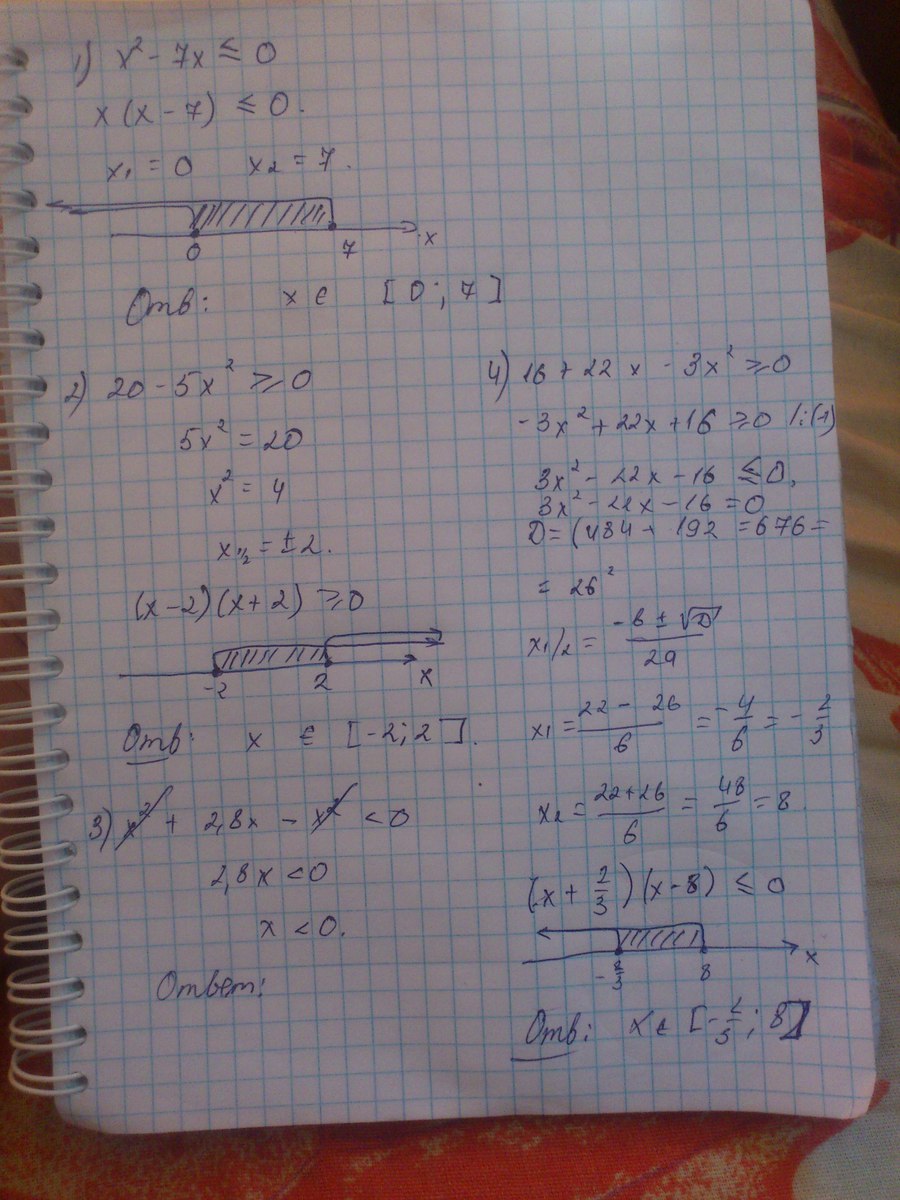 1) x² - 7x ≤ 0
x(x - 7) ≤ 0.
x₁ = 0   x₂ = 7.
0   7   x
Отв:   x ∈ [0; 7]
2) 20 - 5x² ≥ 0
5x² = 20
x² = 4
x₁/₂ = ±2.
(x-2)(x+2) ≥ 0
-2   2   x
Отв:   x ∈ [-2; 2].
3) x² + 2,8x - x² < 0
2,8x < 0
x < 0.
Ответ:
4) 16 + 22x - 3x² ≥ 0
-3x² + 22x + 16 ≥ 0 /:(1)
3x² - 22x - 16 ≤ 0,
3x² - 22x - 16 = 0
D = (484 + 192 = 676 =
= 26²
x₁/₂ = (-b ± √D)/2a
x₁ = (22 - 26)/6 = -4/6 = -2/3
x₂ = (22+26)/6 = 48/6 = 8
(x + 2/3)(x-8) ≤ 0
-2/3   8   x
Отв:   x ∈ [-2/3; 8]